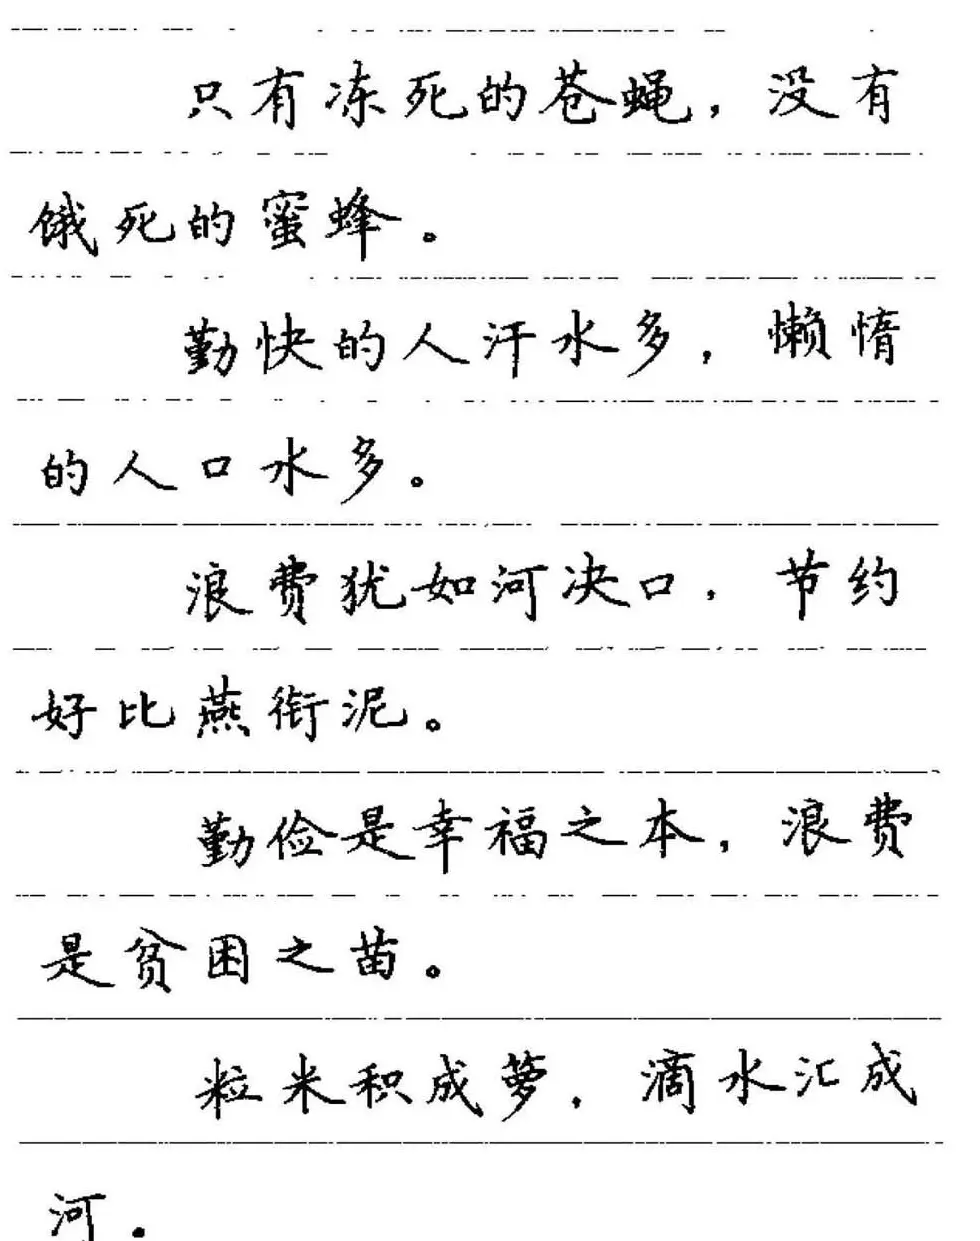 只有冻死的苍蝇，没有
饿死的蜜蜂。
勤快的人汗水多，懒惰
的人口水多。
浪费犹如河决口，节约
好比燕衔泥。
勤俭是幸福之本，浪费
是贫困之苗。
粒米积成萝，滴水汇成
河。